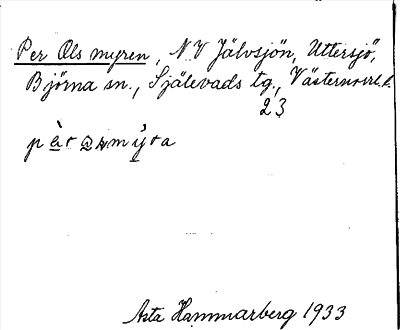 Per Ols myren, N.V Jälvsjön, Uttersjö,
Björna sn., Själevads tg., Västernorrl. l.
23
pèrasmýra
Asta Hammarberg 1933